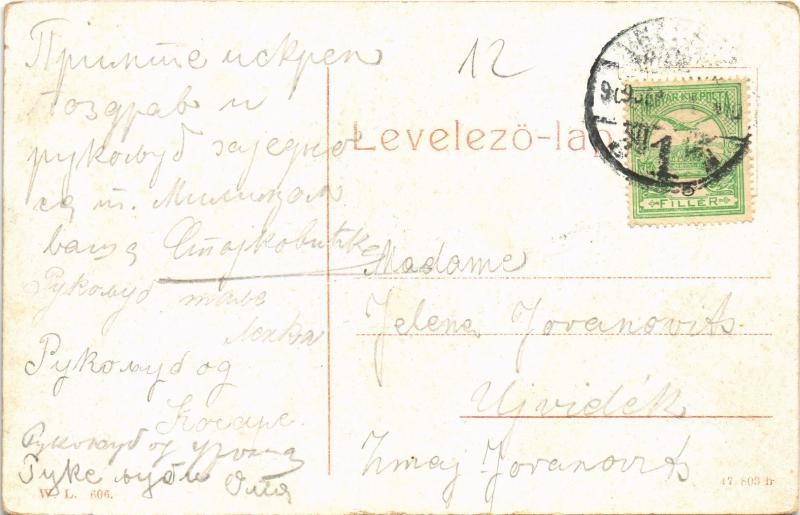 Примите искрен
поздрав и
рукољуб заједно
са т. Милицом
ваша Стајковићка
Рукољуб
Рукољуб од
Косаре.
Рукољуб од Уроша
Руке љуби Оља
W. L. 606.
12
Levelező-lap
MAGYAR KIR. POSTA
1
FILLÉR
Madame
Jelena Jovanovits
Ujvidék
Zmaj Jovanovits